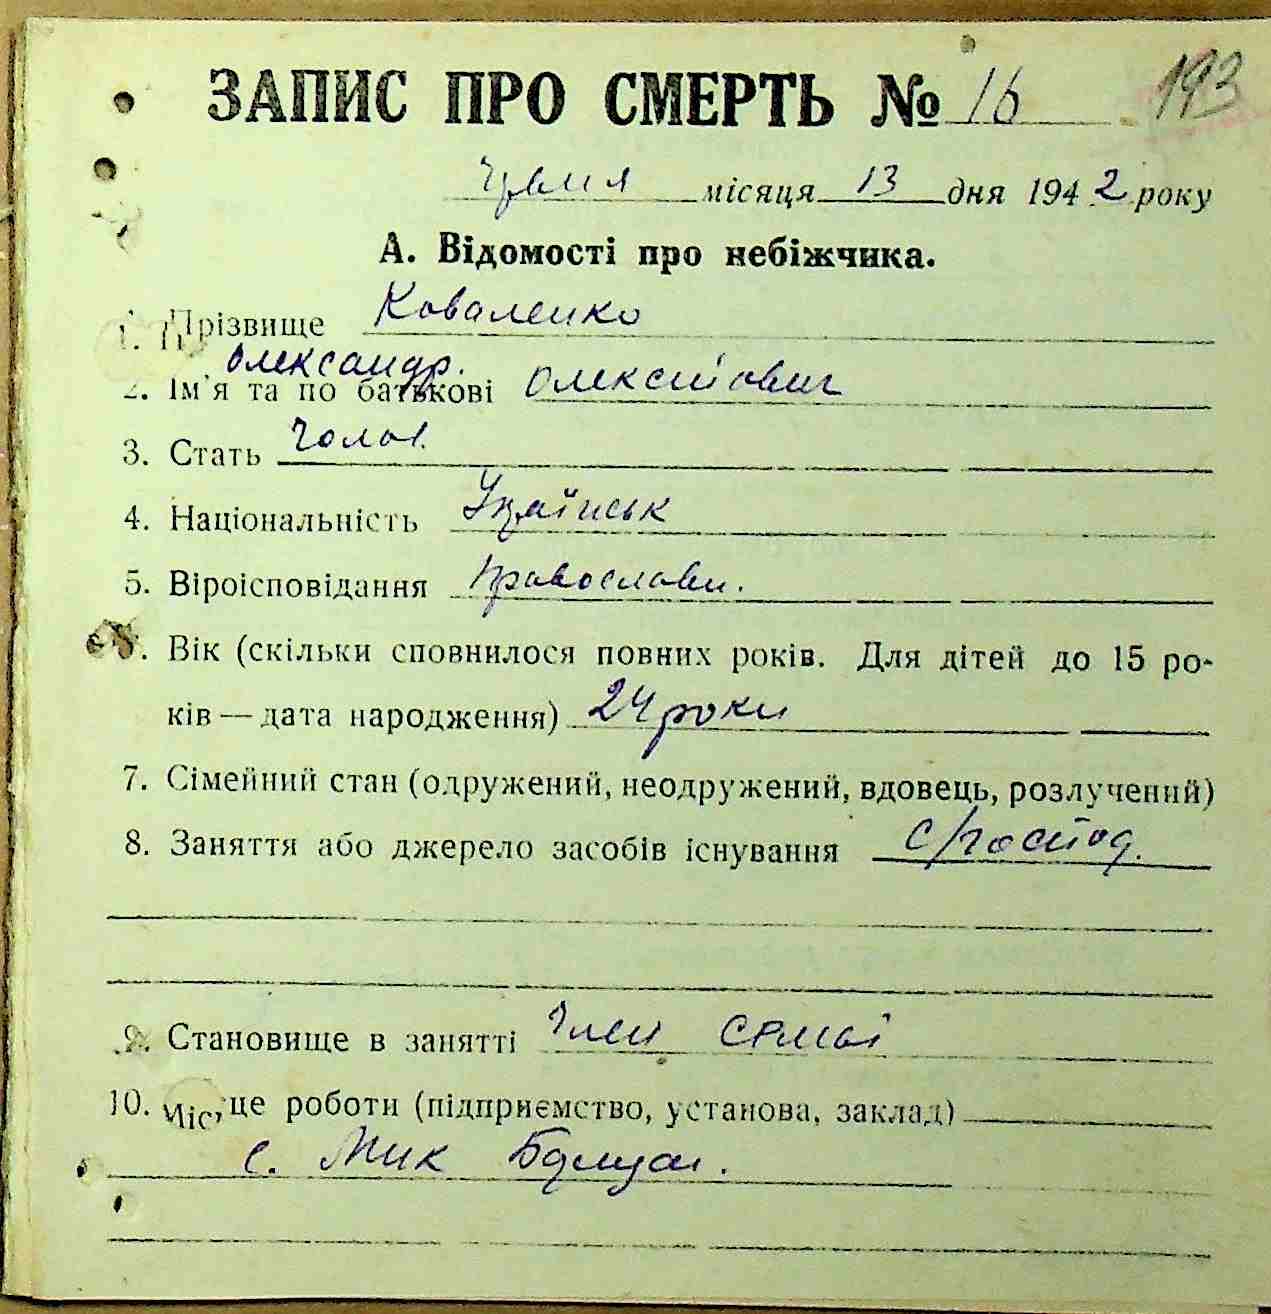 ЗАПИС ПРО СМЕРТЬ № 16 193
місяця 13 дня 1942 року
А. Відомості про небіжчика.
1. Прізвище Коваленко
Олександр.
2. Ім'я та по батькові Олексійович
3. Стать Чолов.
4. Національність Українськ
5. Віроісповідання Православн.
6. Вік (скільки сповнилося повних років. Для дітей до 15 ро-
ків — дата народження) 24 роки
7. Сімейний стан (одружений, неодружений, вдовець, розлучений)
8. Заняття або джерело засобів існування с/господ.
9. Становище в занятті Член сем'ї
10. Місце роботи (підприємство, установа, заклад)
с.